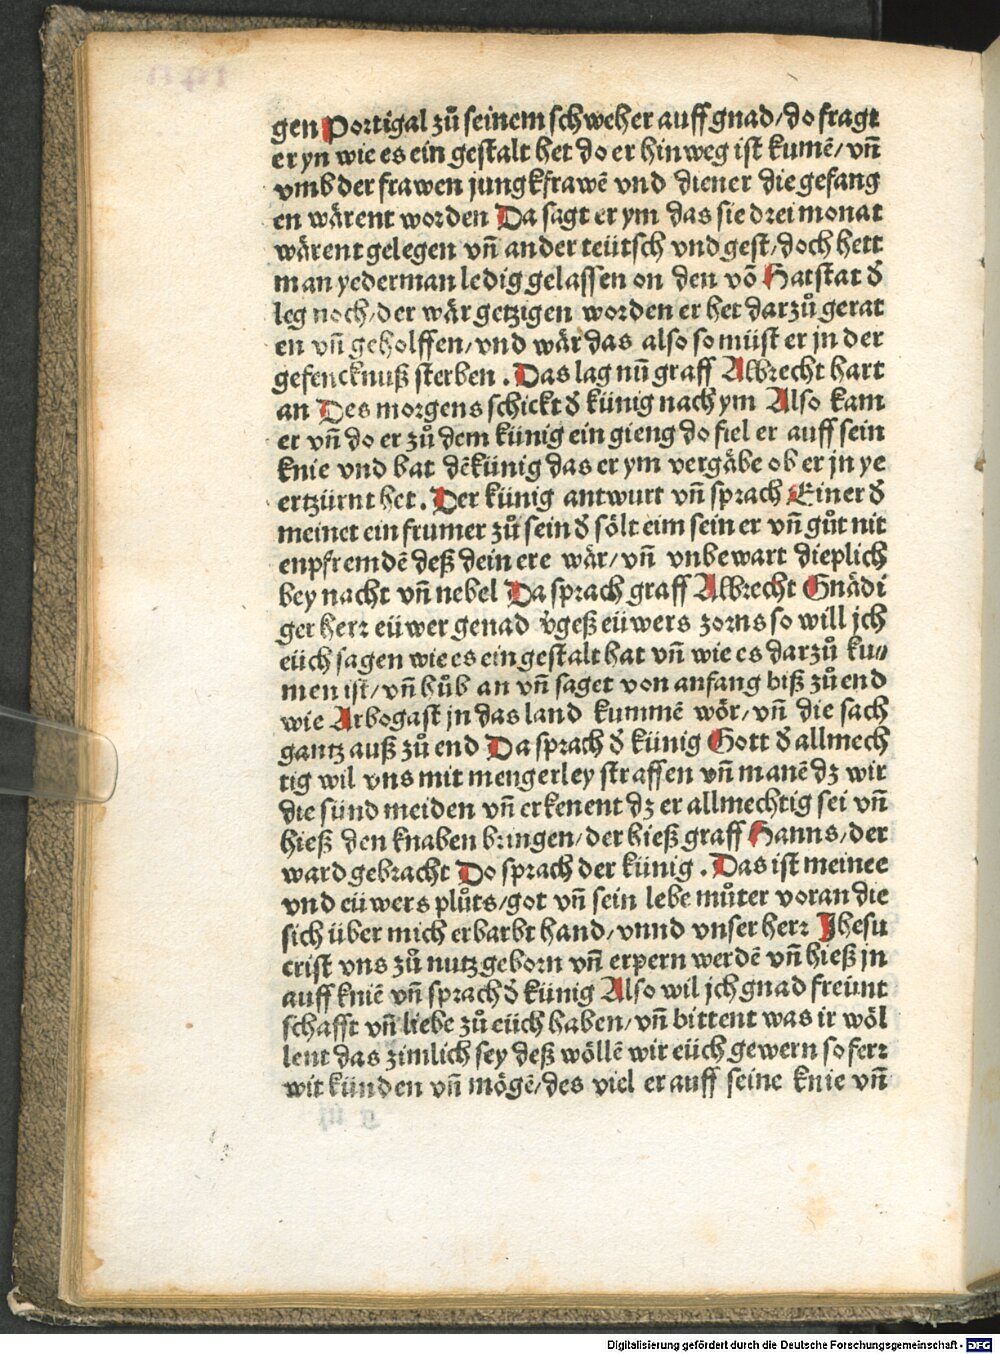 gen Portigal zů seinem schweher auff gnad/do fragt
er yn wie es ein gestalt het do er hin weg ist kumē/vñ
vmb der frawen jungkfrawē vnd diener die gefang
en wärent worden Da sagt er ym das sie drei monat
wärent gelegen vñ an der teütsch vnd gest/doch hett
man yederman ledig gelassen on den vō Hatstat d̕
leg noch/der wär getzigen worden er het darzů gerat
en vñ geholffen/vnd wär das also so müst er jn der
gefencknuß sterben . Das lag nū graff Albrecht hart
an Des morgens schickt d̕ künig nach ym Also kam
er vñ do er zů dem künig ein gieng do fiel er auff sein
knie vnd bat dē künig das er ym vergäbe ob er jn ye
ertzürnt het . Der künig antwurt vñ sprach Einer d̕
meinet ein frumer zů sein d̕ sölt eim sein er vñ gůt nit
enpfremdē deß dein ere wär/vñ vnbewart dieplich
bey nacht vñ nebel Da sprach graff Albrecht Gnädi
ger herr eüwer genad v̕geß eüwers zorns so will jch
eüch sagen wie es ein gestalt hat vñ wie es darzů ku⸗
men ist/vñ hůb an vñ saget von anfang biß zů end
wie Arbogast jn das land kummē wör/vñ die sach
gantz auß zů end Da sprach d̕ künig Gott d̕ allmech
tig wil vns mit mengerley straffen vñ manē dz wir
die sünd meiden vñ erkenent dz er allmechtig sei vñ
hieß den knaben bringen/der hieß graff Hanns/der
ward gebracht Do sprach der künig . Das ist meinee
vnd eüwers plůts/got vñ sein lebe můter voran die
sich über mich erbarbt hand/vnnd vnser herr Jhesu
crist vns zů nutz geborn vñ erpern werdē vñ hieß jn
auff kniē vñ sprach d̕ künig Also wil jch gnad freünt
schafft vñ liebe zů eüch haben/vñ bittent was ir wöl
lent das zimlich sey deß wöllē wir eüch gewern so ferr
wir künden vñ mögē/des viel er auff seine knie vñ
Digitalisierung gefördert durch die Deutsche Forschungsgemeinschaft - DFG